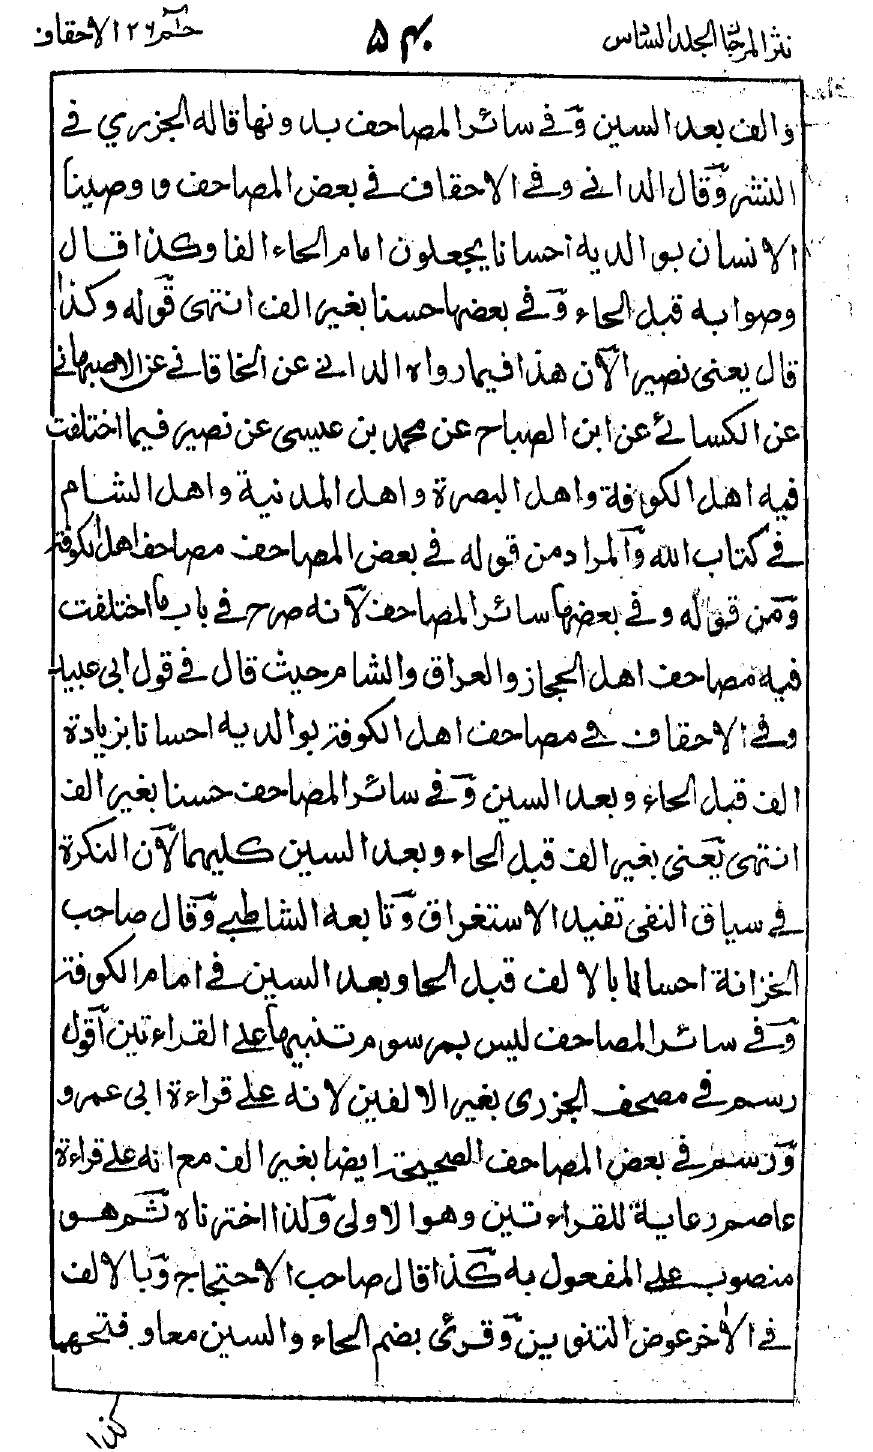 نثر المرجان الجلد السادس ۵۴۰ حم ۲۶ الاحقاف
والف بعد السين وَفي سائر المصاحف بدونها قاله الجزري في
النشر وَقال الداني وفي الاحقاف في بعض المصاحف ووصينا
الانسان بوالديه احسانا يجعلون امام الحاء الفا وكذا قال
وصوابه قبل الحاء وَفي بعضها حسنا بغير الف انتهى قوله وكذا
قال يعنى نصير الآن هذا فيما رواه الداني عن الخاقاني عن الاصبهاني
عن الكسائي عن ابن الصباح عن محمد بن عيسى عن نصير فيما اختلفت
فيه اهل الكوفة واهل البصرة واهل المدنية واهل الشام
في كتاب الله وَالمراد من قوله في بعض المصاحف مصاحف اهل الكوفة
وَمن قوله وفي بعضها سائر المصاحف لانه صرح في باب ما اختلفت
فيه مصاحف اهل الحجاز والعراق والشام حيث قال في قول ابي عبيد
وفي الاحقاف في مصاحف اهل الكوفة بوالديه احسانا بزيادة
الف قبل الحاء وبعد السين وَفي سائر المصاحف حسنا بغير الف
انتهى يَعنى بغير الف قبل الحاء وبعد السين كليهما لآن النكرة
في سياق النفى تفيد الاستغراق وَتابعه الشاطبي وَقال صاحب
الخزانة احسانا بالالف قبل الحا وبعد السين في امام الكوفة
وَفي سائر المصاحف ليس بمرسوم تنبيها على القراءتين اَقول
رسم في مصحف الجزرى بغير الالفين لانه على قراءة ابى عمرو
وَرسم في بعض المصاحف الصحيحة ايضا بغير الف مع انه على قراءة
عاصم رعاية للقراءتين وهو الاولى وَلذا اخترناه ثَم هو
منصوب على المفعول به كَذا قال صاحب الاحتجاج وَبالالف
في الآخر عوض التنوين وَقرئ بضم الحاء والسين معا وبفتحهما
كذا